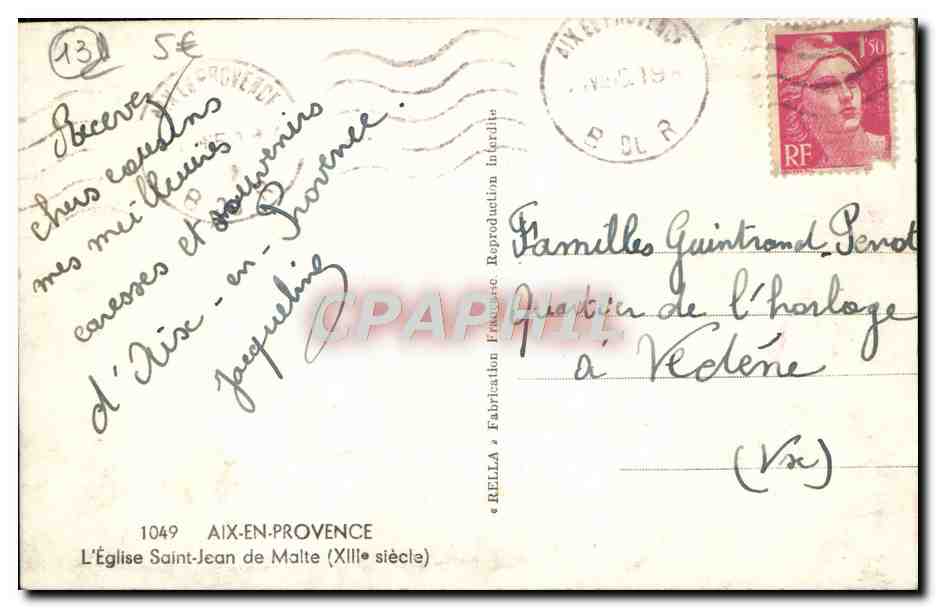 13
5€
Recevez
chers cousins
mes meilleures
caresses et souvenirs
d'Aix-en-Provence.
Jacqueline
1049 AIX-EN-PROVENCE
L'Église Saint-Jean de Malte (XIIIe siècle)
« RELLA » Fabrication Française. Reproduction interdite
AIX EN PROVENCE
B DU R
AIX EN PROVENCE
1f50
RF
Familles Guintrand-Penot
Quartier de l'horloge
à Vedène
(Vse)
CPAPHIL